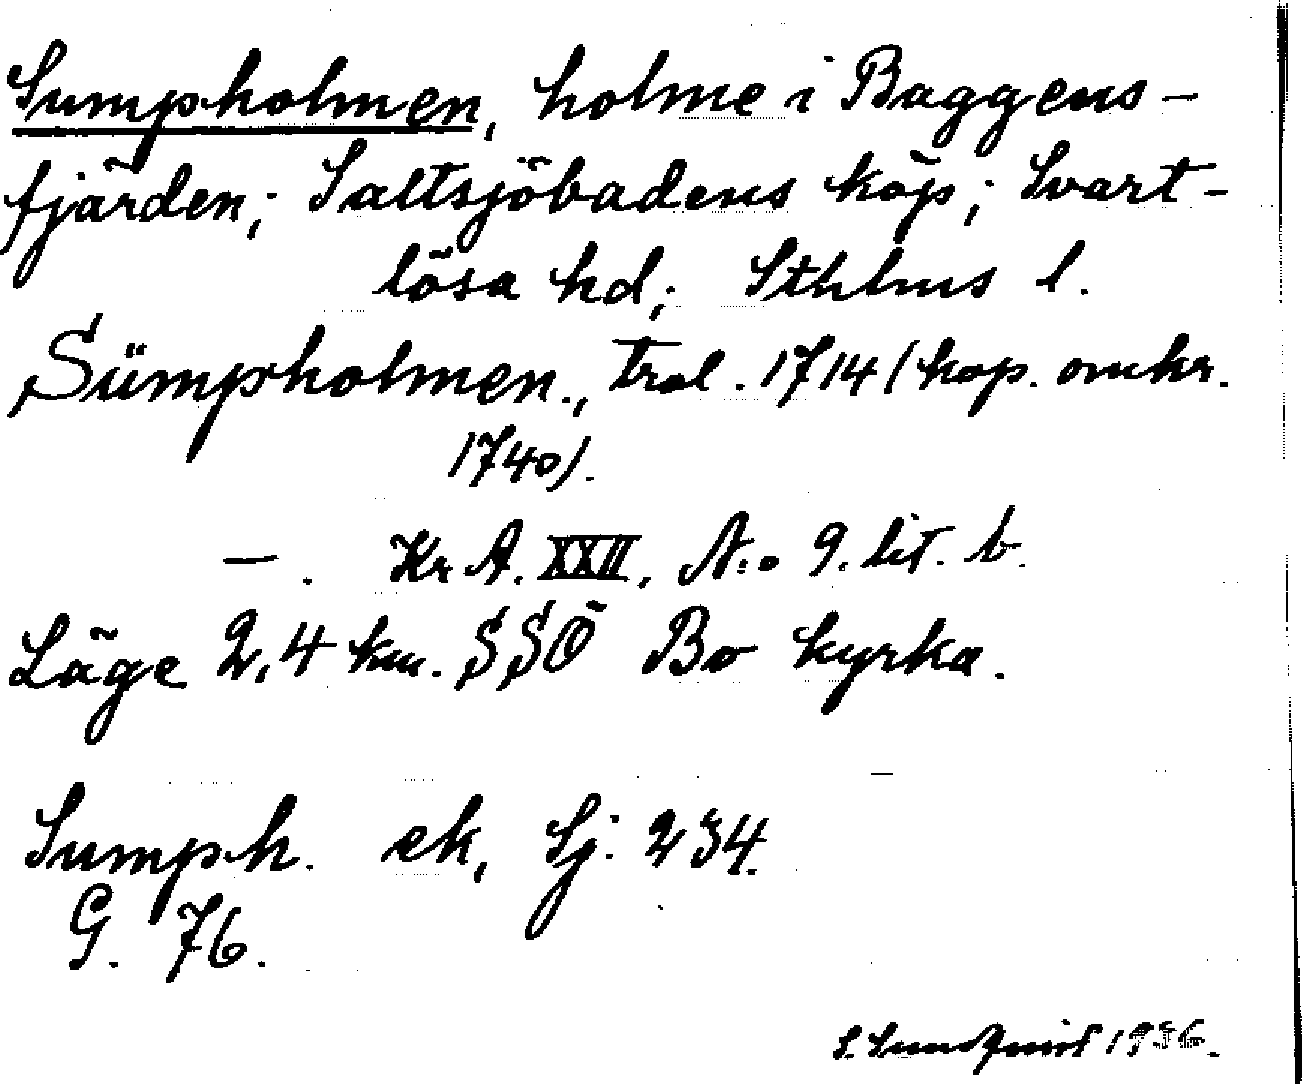 Sumpholmen, holme i Baggens-
fjärden; Saltsjöbadens köp; Svart-
lösa hd; Sthlms l.
Sümpholmen., trol. 1714 (kop. omkr.
1740).
—. Kr A. XXII, N:o 9. lit. b.
Läge 2,4 km. SSÖ Bo kyrka.
Sumph. ek, Sj. 234.
G. 76.
S. 1936.